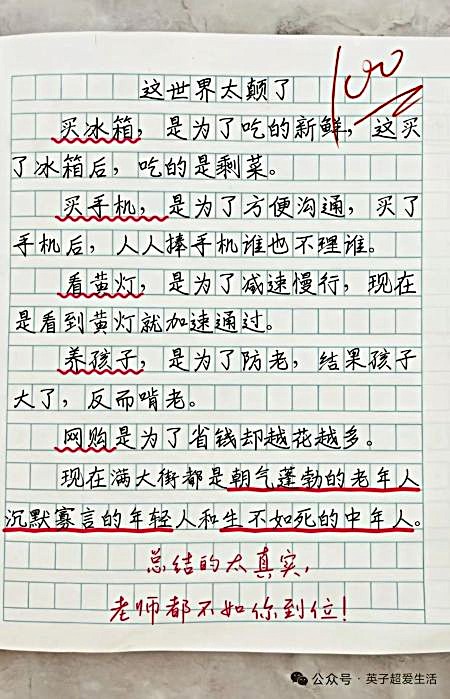 100
这世界太颠了
买冰箱，是为了吃的新鲜，这买
了冰箱后，吃的是剩菜。
买手机，是为了方便沟通，买了
手机后，人人捧手机谁也不理谁。
看黄灯，是为了减速慢行，现在
是看到黄灯就加速通过。
养孩子，是为了防老，结果孩子
大了，反而啃老。
网购是为了省钱却越花越多。
现在满大街都是朝气蓬勃的老年人
沉默寡言的年轻人和生不如死的中年人。
总结的太真实，
老师都不如你到位！
公众号·英子超爱生活